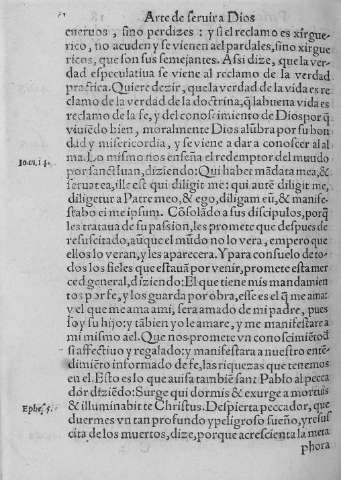 Arte de seruir a Dios
cueruos, sino perdizes: y si el reclamo es xirgue
rico, no acuden y se vienen ael pardales, sino xirgue
ricos, que son sus semejantes. Assi dize, que la ver
dad especulatiua se viene al reclamo de la verdad
practica. Quiere dezir, que la verdad de la vida es re
clamo de la verdad de la doctrina, q̃ la buena vida es
reclamo de la fe, y del conoscimiento de Dios porq̃
viuiẽdo bien, moralmente Dios alũbra por su bon
dad y misericordia, y se viene a dar a conoscer al al
ma. Lo mismo nos enseña el redemptor del mundo
Ioan. 14.
por sanct Iuan, diziendo: Qui habet mãdata mea, &
seruat ea, ille est qui diligit me: qui autẽ diligit me,
diligetur à Patre meo, & ego, diligam eũ, & manife-
stabo ei me ipsum. Cõsolãdo a sus discipulos, porq̃
les trataua de su passion, les promete que despues de
resuscitado, aũque el mũdo no lo vera, empero que
ellos lo veran, y les aparecera. Y para consuelo de to
dos los fieles que estauã por venir, promete esta mer
ced general, diziendo: El que tiene mis mandamien
tos por fe, y los guarda por obra, esse es el q̃ me ama:
y el que me ama ami, sera amado de mi padre, pues
soy su hijo: y tãbien yo le amare, y me manifestare a
mi mismo a el. Que nos promete vn conoscimiẽto
si affectiuo y regalado: y manifestara a nuestro entẽ
dimiẽto informado de fe, las riquezas que tenemos
en el. Esto es lo que auisa tambiẽ sant Pablo al pecca
dor diziẽdo: Surge qui dormis & exurge a mortuis
Ephes. 5.
& illuminabit te Christus. Despierta peccador, que
duermes vn tan profundo y peligroso sueño, y resus
cita de los muertos, dize, porque acrescienta la meta
phora